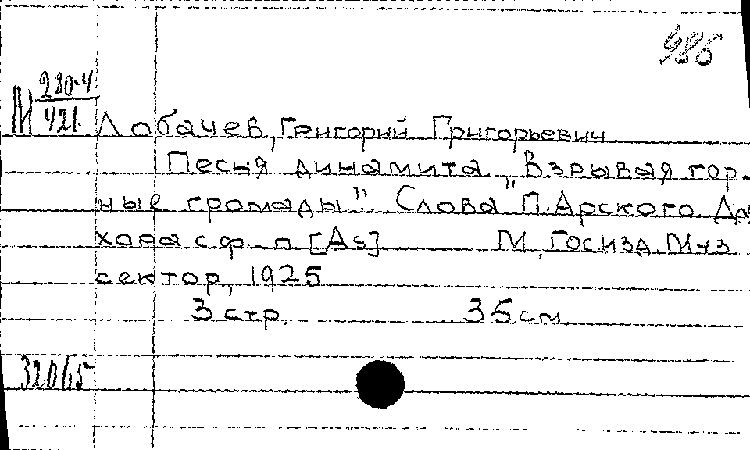 985
М 280-4
421
Лобачев, Григорий Григорьевич
Песня динамита „Взрывая гор-
ные громады" Слова П. Арского Дл
хора с ф-п [As] М, Госизд. Муз
сектор, 1925
3 стр. 35 см
32065